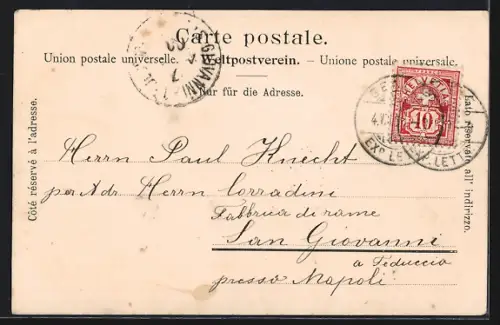 Carte postale.
Union postale universelle. Weltpostverein. - Unione postale universale.
Nur für die Adresse.
Côté réservé à l'adresse.
Lato riservato all' indirizzo.
GIOVANNI
HELVETIA
10
EXP. LETT.
Herrn Paul Knecht
per Adr. Herrn Corradini
Fabbrica di rame
San Giovanni
a Teduccio
presso Napoli